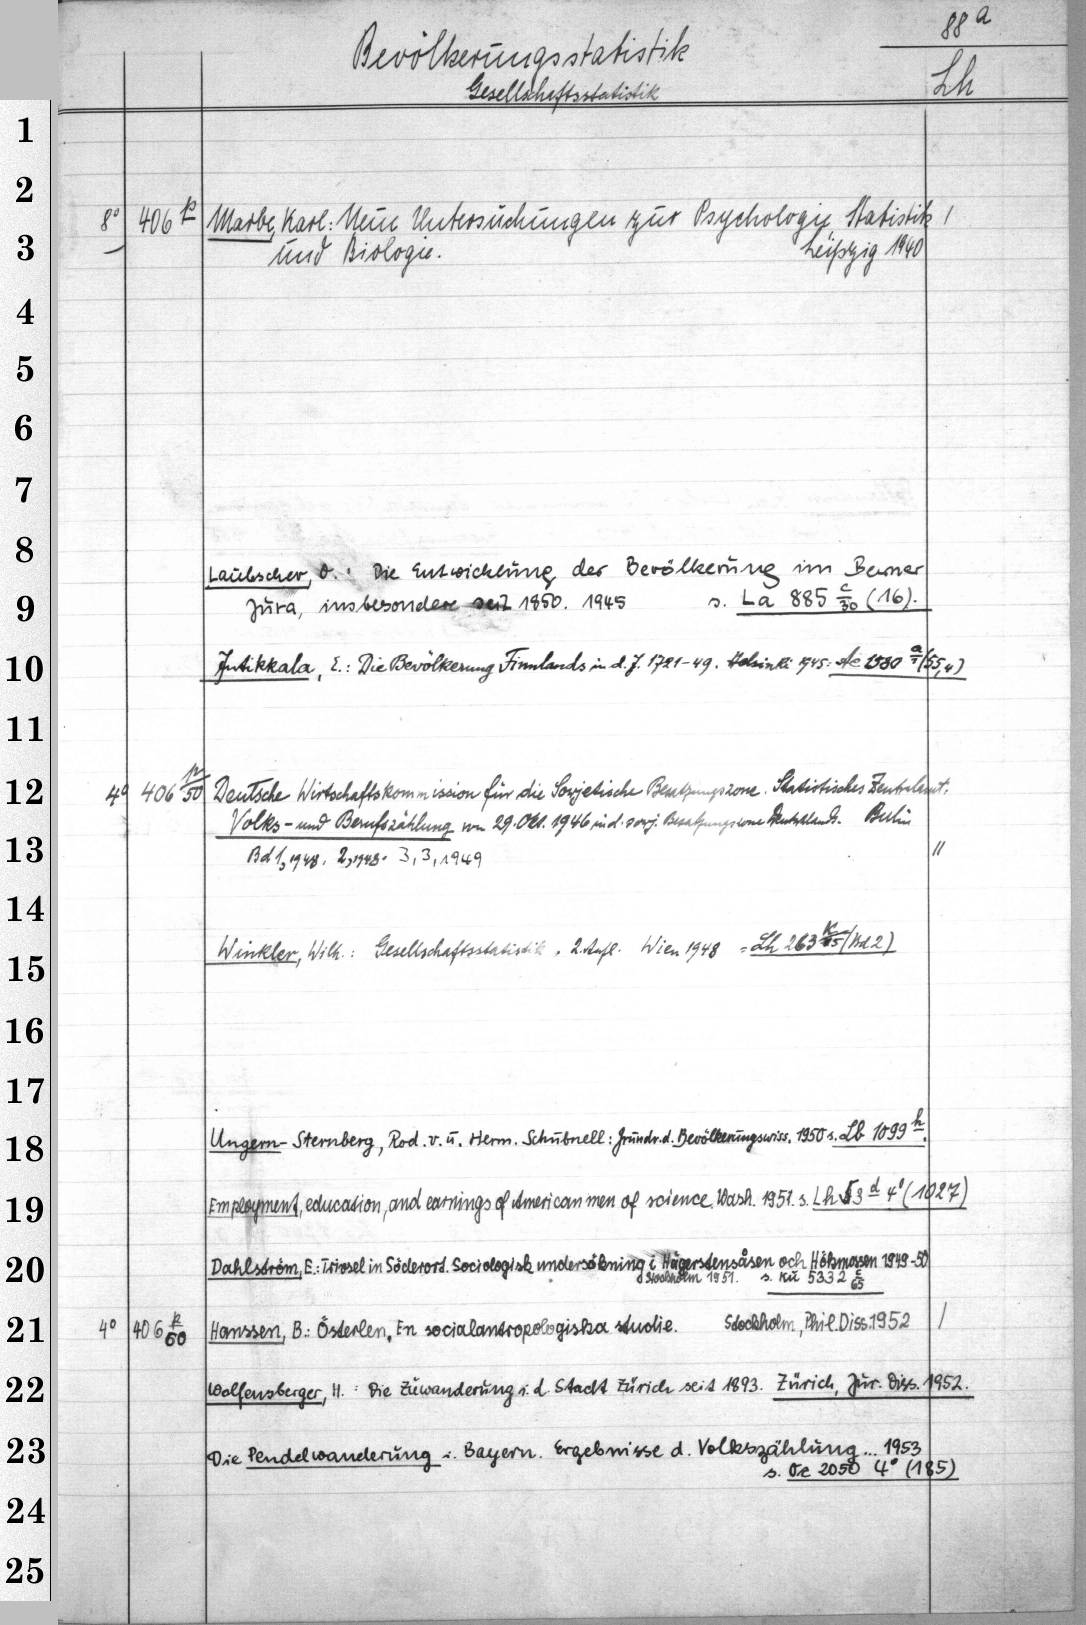 88 a
Bevölkerungsstatistik
Gesellschaftsstatistik
Lh
1
2
8° 406 p Marbe, Karl: Neue Untersuchungen zur Psychologie, Statistik /
3
und Biologie. Leipzig 1940
4
5
6
7
8
Laubscher, O.: Die Entwicklung der Bevölkerung im Berner
9
Jura, insbesondere seit 1850. 1945 s. La 885 c/30 (16).
10 Jutikkala, E.: Die Bevölkerung Finnlands in d. J. 1721-49. Helsinki 1945: Ac 2580 a/1 (55,4)
11
12 4° 406 p/50 Deutsche Wirtschaftskommission für die Sowjetische Besatzungszone. Statistisches Zentralamt.
Volks- und Berufszählung von 29. Okt. 1946 in d. sowj. Besatzungszone Deutschlands. Berlin
13 Bd 1, 1948. 2, 1948. 3, 3, 1949 //
14
Winkler, Wilh.: Gesellschaftsstatistik. 2. Aufl. Wien 1948 = Lh 263 /65 (Bd 2)
15
16
17
18 Ungern-Sternberg, Rod. v. u. Herm. Schubnell: Grundr. d. Bevölkerungswiss. 1950 s. Lb 1099 h.
19 Employment, education, and earnings of American men of science. Wash. 1951. s. Lh 53 d 4° (1027)
20 Dahlström, E.: Trivsel in Söderort. Sociologisk undersökning i Hägerstensåsen och Hökmossen 1949-50
Stockholm 1951. s. Ku 5332 c/65
21 4° 406 p/60 Hanssen, B.: Österlen. En socialantropologiska studie. Stockholm, Phil. Diss. 1952 /
22 Wolfensberger, H.: Die Zuwanderung i. d. Stadt Zürich seit 1893. Zürich, Jur. Diss. 1952.
23 Die Pendelwanderung i. Bayern. Ergebnisse d. Volkszählung ... 1953
s. Oe 2050 4° (185)
24
25